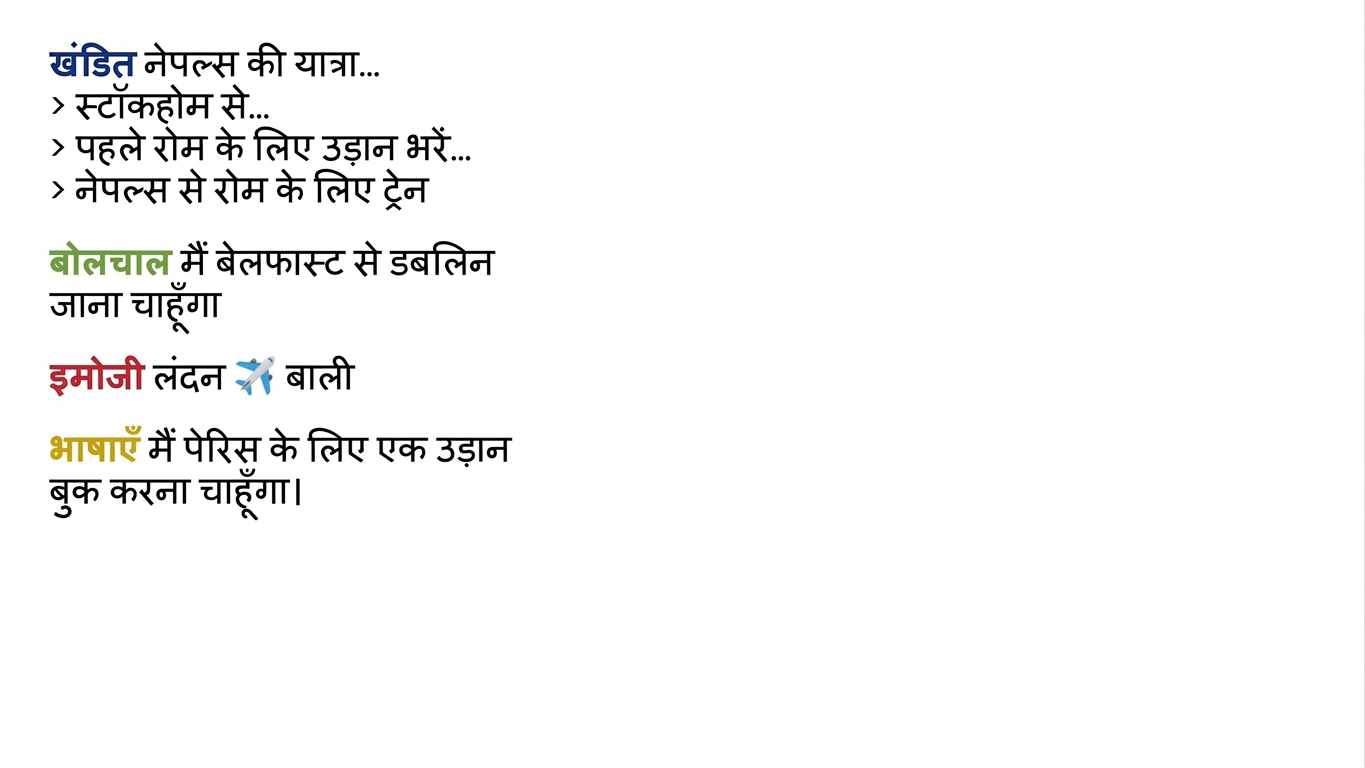 खंडित नेपल्स की यात्रा...
> स्टॉकहोम से...
> पहले रोम के लिए उड़ान भरें...
> नेपल्स से रोम के लिए ट्रेन
बोलचाल मैं बेलफास्ट से डबलिन
जाना चाहूँगा
इमोजी लंदन ✈️ बाली
भाषाएँ मैं पेरिस के लिए एक उड़ान
बुक करना चाहूँगा।